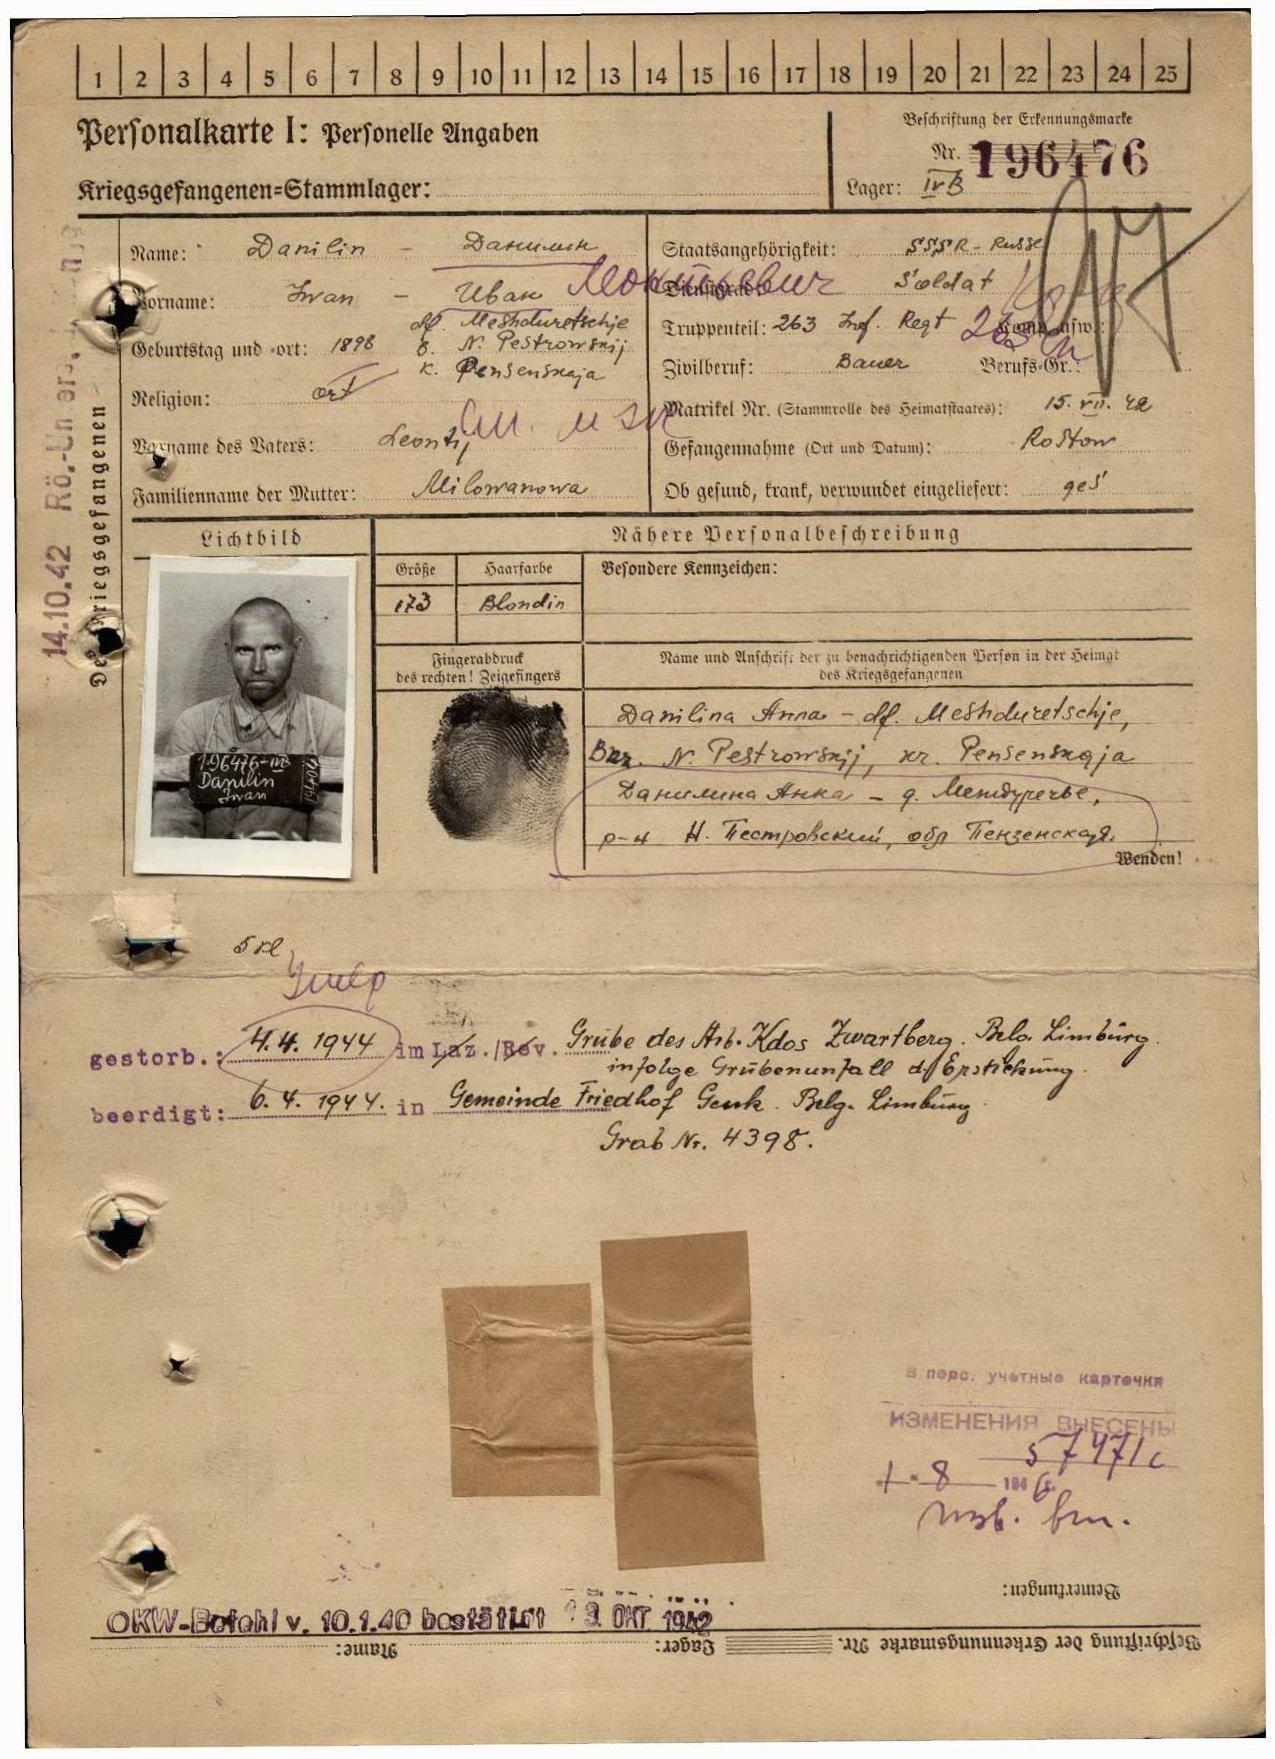 1 2 3 4 5 6 7 8 9 10 11 12 13 14 15 16 17 18 19 20 21 22 23 24 25
Personalkarte I: Personelle Angaben
Kriegsgefangenen-Stammlager:
Beschriftung der Erkennungsmarke
Nr. 196476
Lager: IVB
Name: Danilin - Данилин
Vorname: Iwan - Иван Леонтьевич
df. Meshduretschje
Geburtstag und -ort: 1898 N. Pestrowskij
K. Pensenskaja
Religion: ort
Vorname des Vaters: Leontij
Familienname der Mutter: Milowanowa
Staatsangehörigkeit: SSSR - Russe
Dienstgrad: Soldat
Truppenteil: 263 Inf. Regt Kom. usw.:
Zivilberuf: Bauer Berufs-Gr.:
Matrikel Nr. (Stammrolle des Heimatstaates): 15. VII. 42
Gefangennahme (Ort und Datum): Rostow
Ob gesund, krank, verwundet eingeliefert: ges
14.10.42 Rö.-Un
Des Kriegsgefangenen
Lichtbild
Nähere Personalbeschreibung
Größe Haarfarbe Besondere Kennzeichen:
173 Blondin
Fingerabdruck
des rechten! Zeigefingers
Name und Anschrift der zu benachrichtigenden Person in der Heimat
des Kriegsgefangenen
196476-IVB
Danilin
Iwan
Danilina Anna - df. Meshduretschje,
N. Pestrowskij, kr. Pensenskaja
Данилина Анна - д. Междуречье,
р-н Н. Пестровский, обл Пензенская.
Wenden!
5 kl
Умер
gestorb.: 4.4. 1944 im Laz./Rev. Grube des Arb. Kdos Zwartberg. Belg. Limbürg.
infolge Grübenunfall d/ Erstickung.
beerdigt: 6. 4. 1944. in Gemeinde Friedhof Genk. Belg. Limbürg
Grab Nr. 4398.
В перс. учетные карточки
ИЗМЕНЕНИЯ ВНЕСЕНЫ
57471с
1 - 8 194
Bemerkungen:
OKW-Befehl v. 10.1.40 bestätigt 9. OKT. 1942
Beschriftung der Erkennungsmarke Nr. Lager: Name: